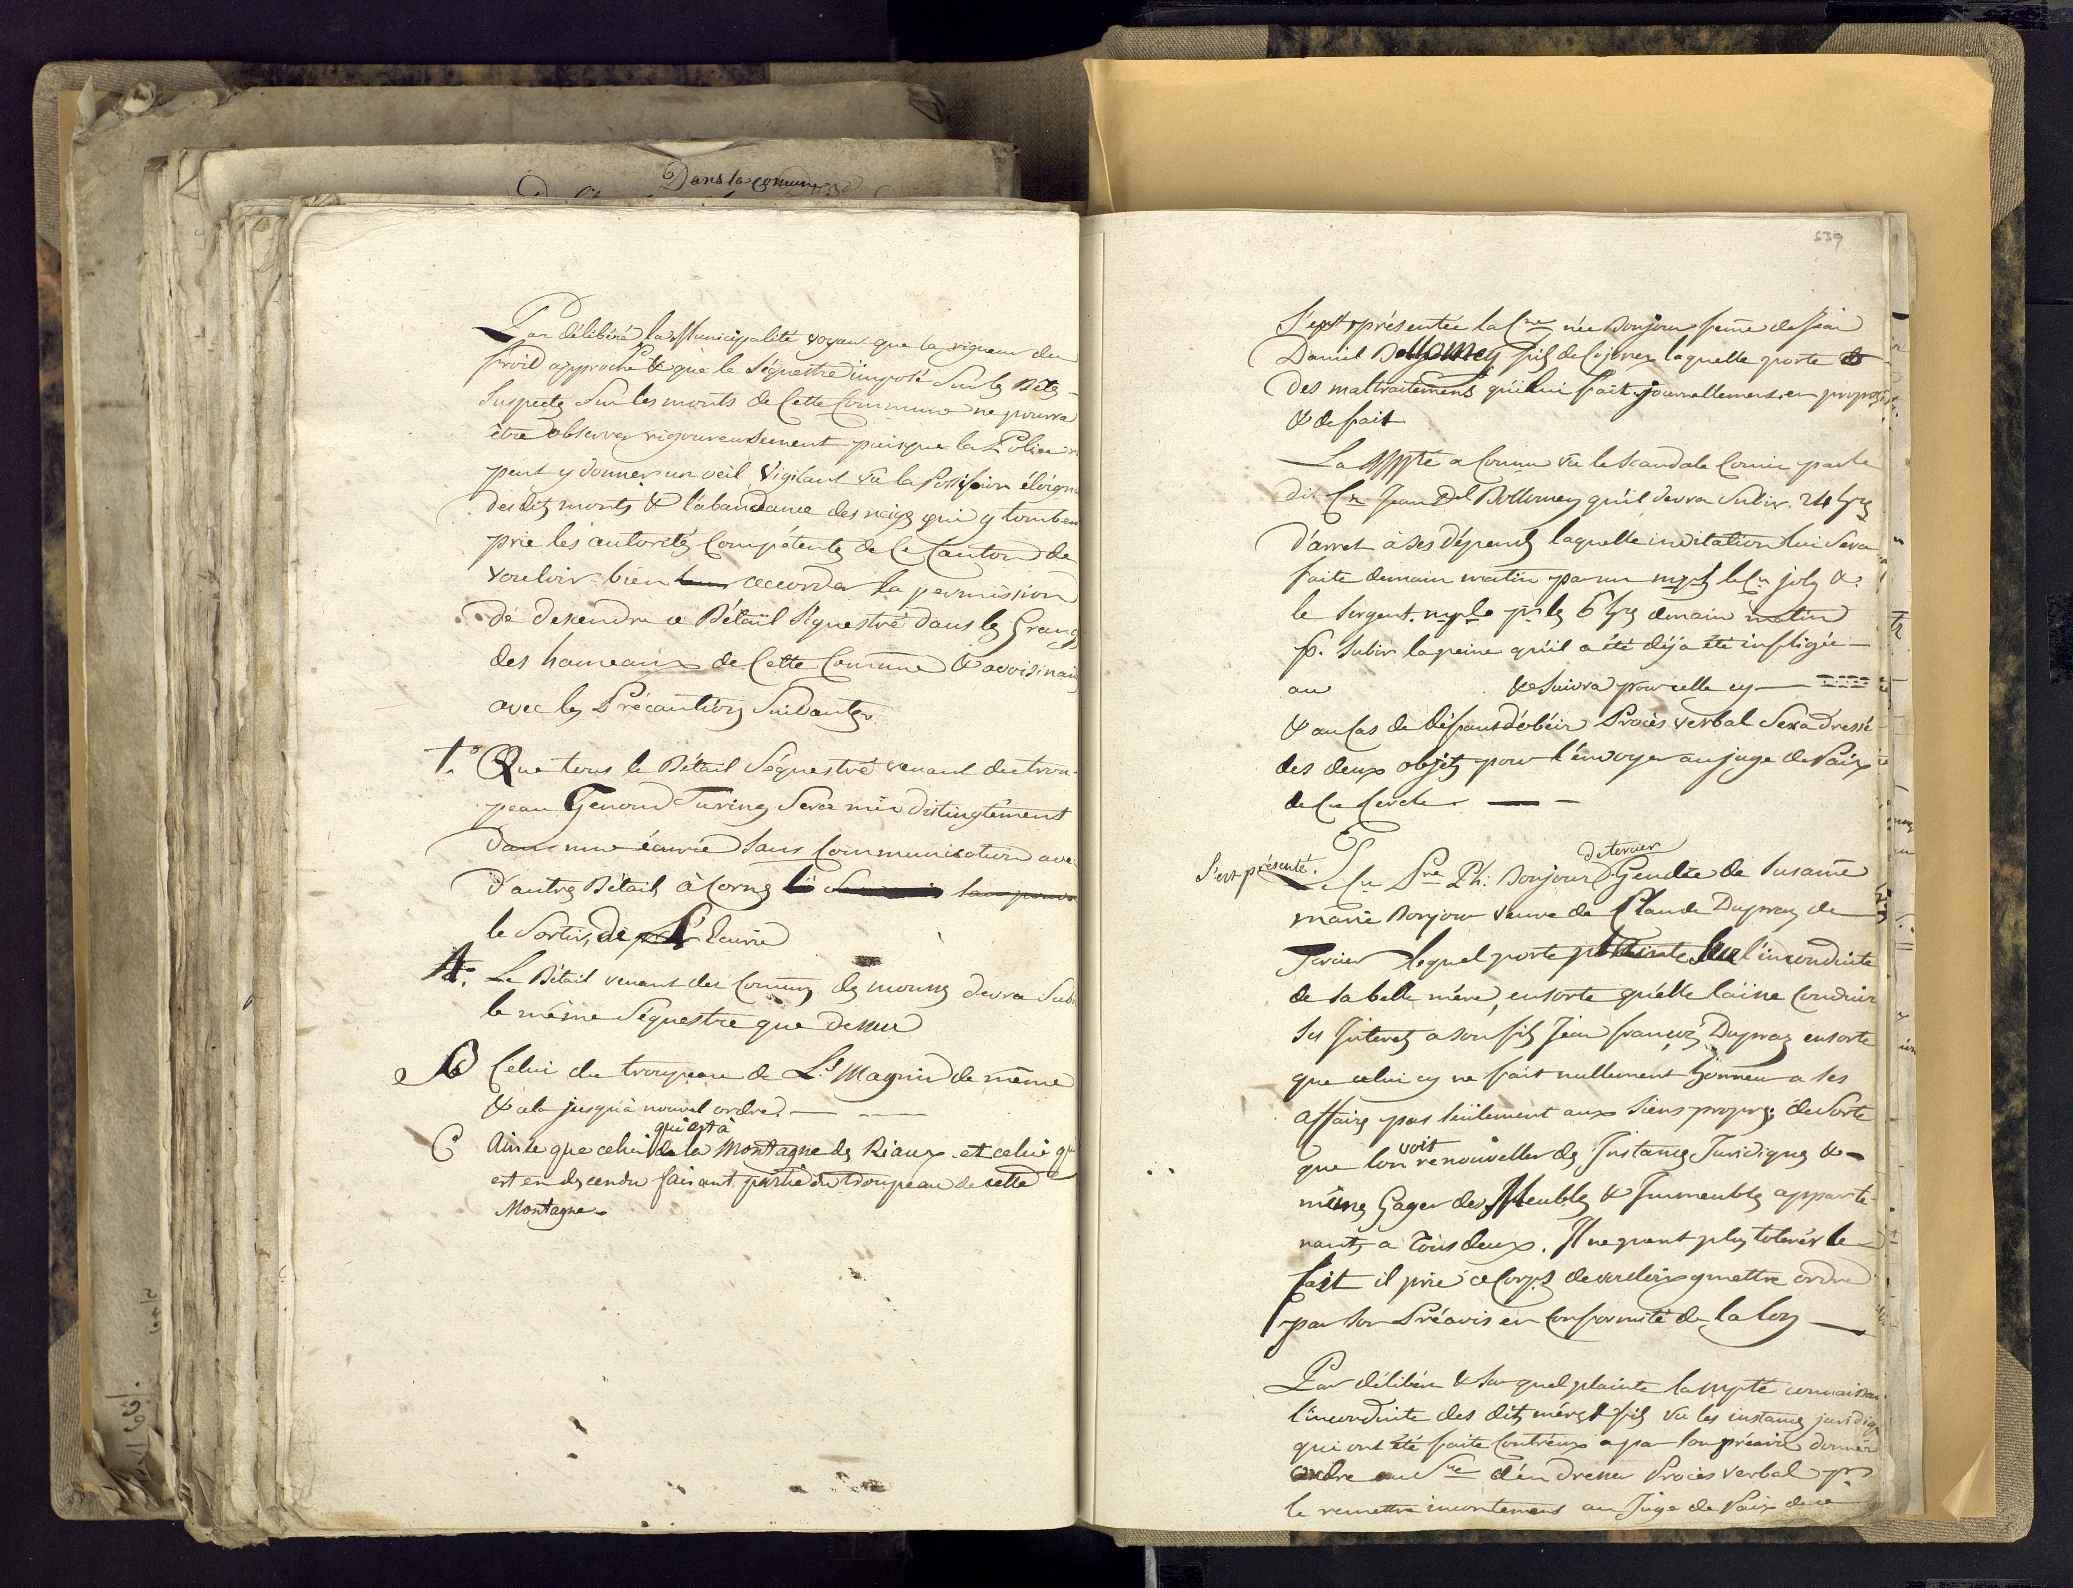 Dans la Comune
Par délibéré la Municipalité voyant que la rigueur du
froid approche & que le Séquestre imposé Sur les Bêtes
Suspectes Sur les monts de Cette Commune ne pourra
être observer rigoureusement puisque la Police ne
peut y donner un oeil Vigilant vu la Position éloigné
des dits monts & l'abandance des neiges qui y tombent
prie les autorités Compétentes de Ce Canton de
vouloir bien accorder la permission
de desendre ce Bétail Séquestré dans les Granges
des hameaux de Cette Commune & avoisinant
avec les Précautions Suivantes
1.° Que tous le Bétail Séquestré venant du trou-
peau Genoud Turing Sera mis distingtement
dans une écurie Sans Communication avec
d'autres Bétail à Cornes
le Sortir, de l'Ecurie
A. Le Bétail venant des Comuns des mouses devra Subir
le même Séquestre que dessus
B Celui du troupeau de Ls Magnin de même
& cela jusqu'à nouvel ordre. —
qui est à
C Ainsi que celui de la Montagne des Riaux et celui qui
est en descendu faisant partie du troupeau de cette
Montagne.
539
S'est présentée la Cne née Bonjour feme de Jean
Daniel Dollomey fils de laquelle porte
des maltraitemens qu'il lui fait journellement en propos
& de fait
La Mpté a Connu vu le Scandale Comis par le
dit Cn Jean Dl Bollomey qu'il devra Subir 24 hres
d'arret à ses dépends laquelle invitation lui Sera
faite demain matin par un mpl le Cn joly &
le Sergent mple pr les 6 hres demain matin
p. Subir la peine qu'il a été déja été infligée —
au & Suivra pour celle cy —
& au Cas de défaut d'obéir Procès verbal Sera dressé
des deux objets pour l'envoyer au juge de Paix
de Ce Cercle. —
de tercier
S'est présenté. Le Cn Pre Ph: Bonjour Gendre de Susanne
marie Bonjour veuve de Claude Dupraz de
Tercier lequel porte plainte Sur l'inconduite
de sa belle mère, ensorte qu'elle laisse Conduire
Ses Interets a son fils Jean françois Dupraz ensorte
que celui cy ne fait nullement honneur a ses
affaires pas seulement aux Siens propres de Sorte
voit
que lon renouveller des Instances Juridiques &
mêmes Gager des Meubles & Immeubles apparte-
nants a Tous deux. Il ne peut plus tolerér le
fait il prie ce Corps de vouloir y mettre ordre
par son Préavis en Conformité de la loy —
Par délibéré & Sur quel plainte la mpté connaissant
l'inconduite des dits mère & fils vu les instances juridiques
qui ont été faite Contr'eux a par son préavis donnér
ordre au Sre d'en dresser Procès verbal pr
le remettre incontinent au Juge de Paix de ce